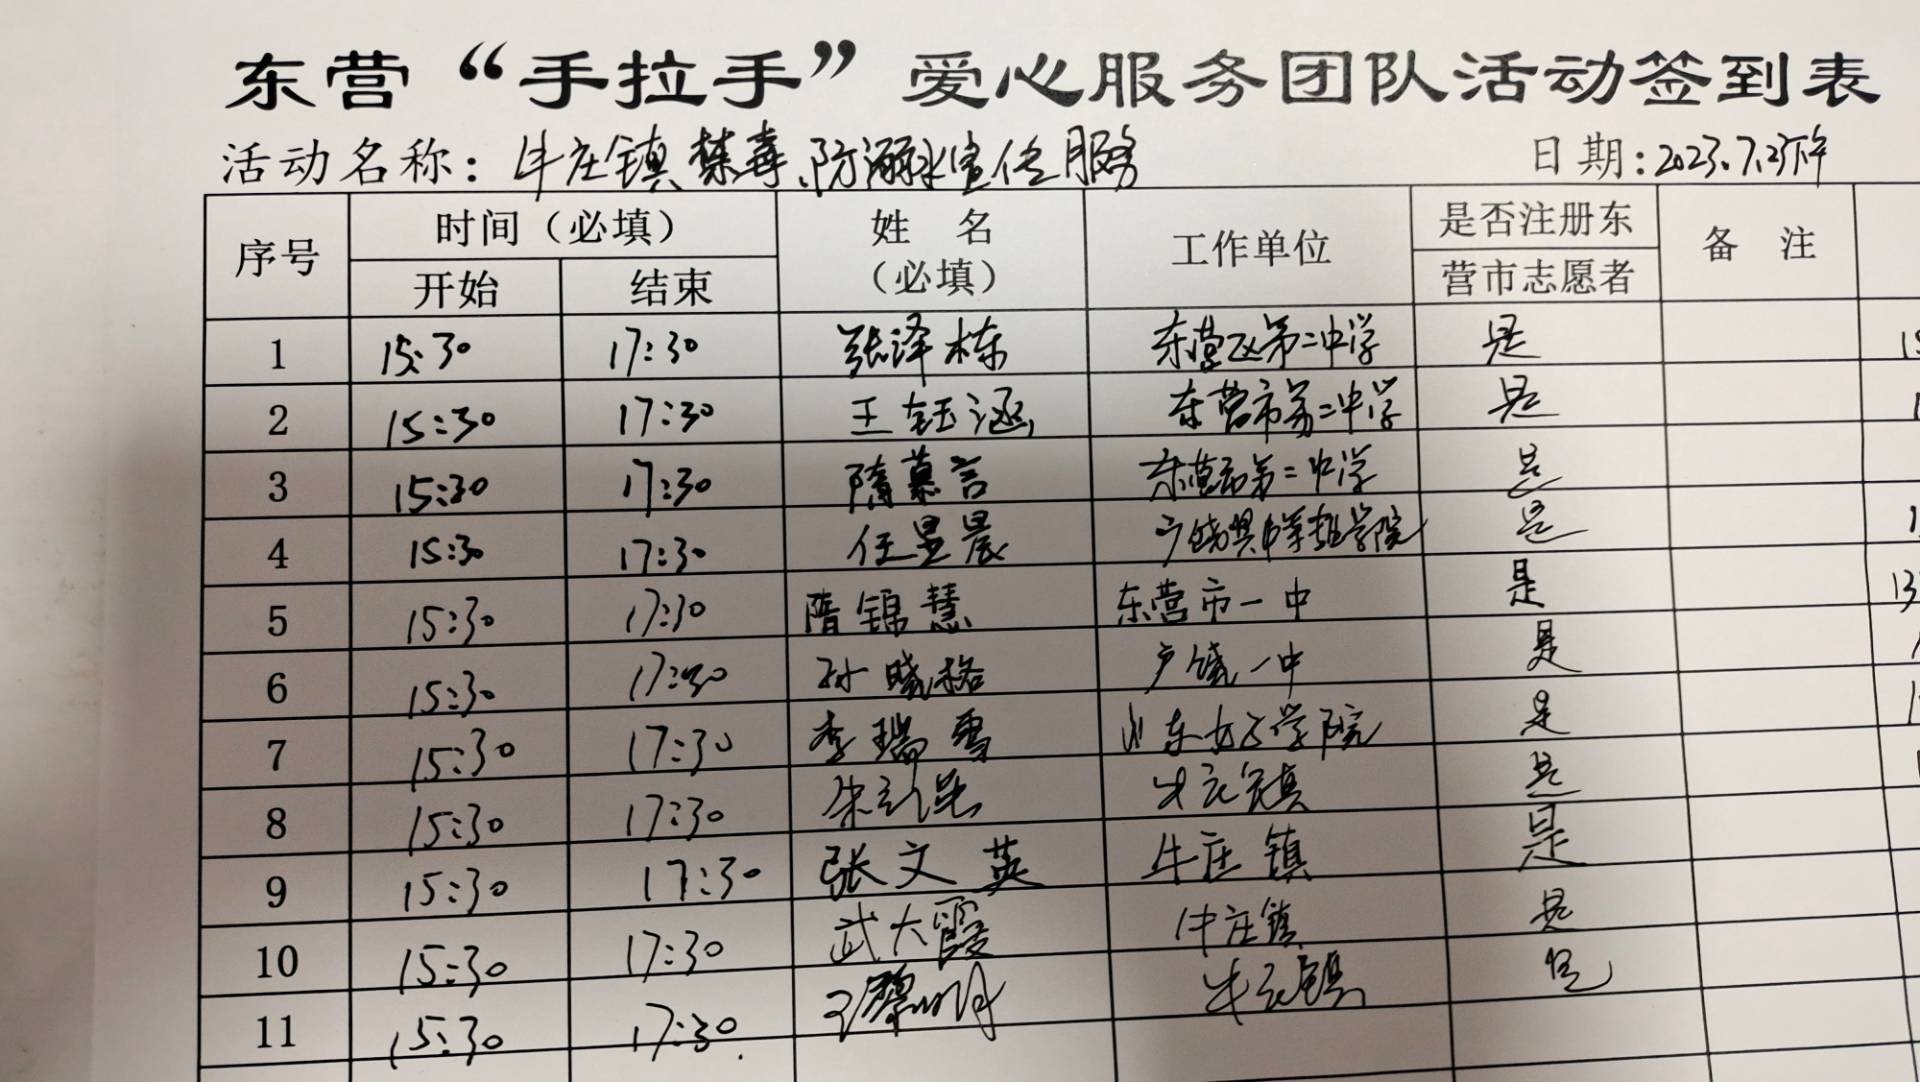 东营“手拉手”爱心服务团队活动签到表
活动名称：牛庄镇禁毒、防溺水宣传服务 日期：2023.7.23下午
序号 时间（必填） 姓 名（必填） 工作单位 是否注册东营市志愿者 备 注
开始 结束
1 15:30 17:30 张泽栋 东营区第二中学 是
2 15:30 17:30 王钰涵 东营市第二中学 是
3 15:30 17:30 隋慕言 东营市第二中学 是
4 15:30 17:30 任昱晨 学院 是
5 15:30 17:30 隋锦慧 东营市一中 是 13
6 15:30 17:30 孙晓格 广饶一中 是
7 15:30 17:30 李瑞雪 山东女子学院 是
8 15:30 17:30 牛庄镇 是
9 15:30 17:30 张文英 牛庄镇 是
10 15:30 17:30 武大霞 牛庄镇 是
11 15:30 17:30 王黎明 牛庄镇 是